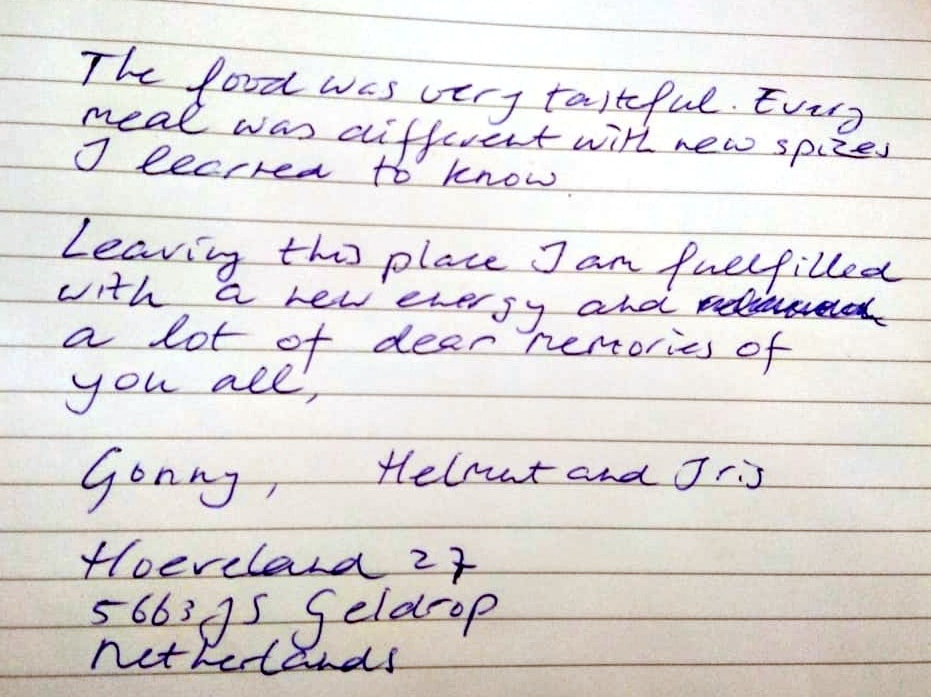 The food was very tasteful. Every
meal was different with new spizes
I learned to know
Leaving this place I am fullfilled
with a new energy and
a lot of dear memories of
you all,
Gonny, Helmut and Iris
Hoeveland 27
5663 JS Geldrop
Netherlands